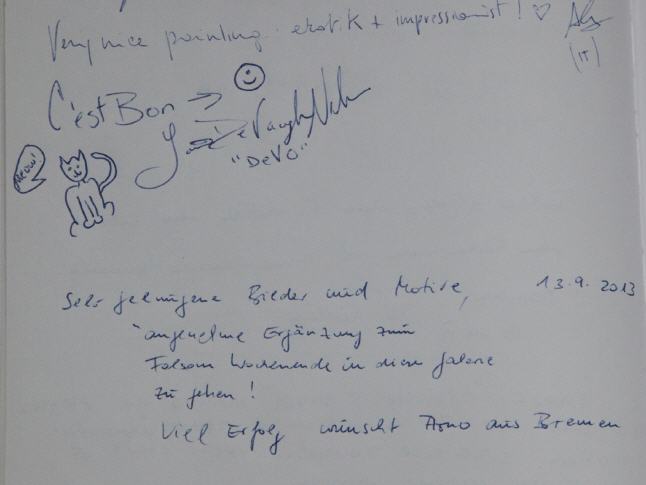 Very nice painting: erotik + impressionist! ♡
(IT)
C'est Bon →
"DeVo"
Meow!
13.9.2013
Sehr gelungene Bilder und Motive,
angenehme Ergänzung zum
Folsom Wochenende in diese Galerie
zu gehen!
Viel Erfolg wünscht Arno aus Bremen